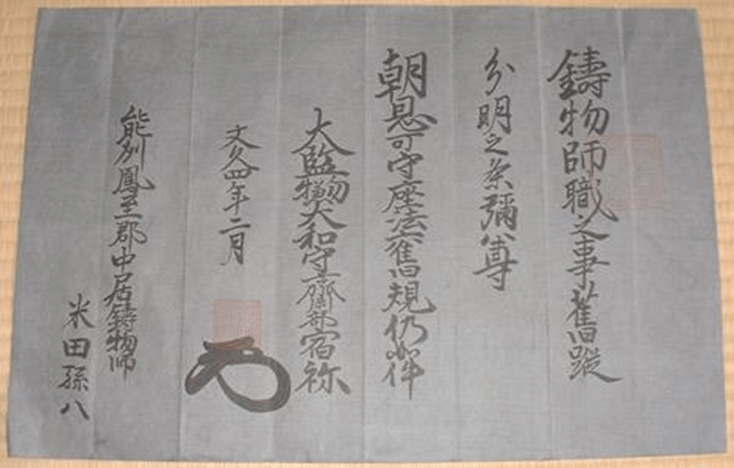 鋳物師職之事舊蹤
分明之条彌尊
朝恩可守座法舊規仍如件
大監物大和守斎部宿祢
文久四年二月
能州鳳至郡中居鋳物師
米田孫八